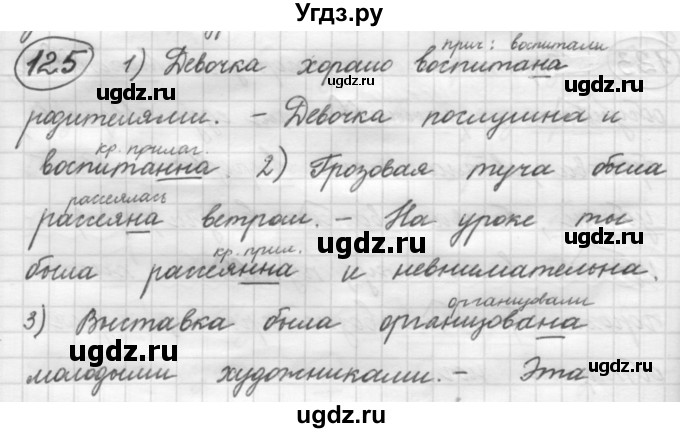 Угдз.ру
прич: воспитали
125 1) Девочка хорошо воспитана
родителями. - Девочка послушна и
кр. прилаг.
воспитанна. 2) Грозовая туча была
рассеялась
рассеяна ветром. - На уроке ты
кр. прил.
была рассеянна и невнимательна.
организовали
3) Выставка была организована
молодыми художниками. - Эта
ugdz.ru
ugdz.ru
ugdz.ru
ugdz.ru
ugdz.ru
ugdz.ru
ugdz.ru
ugdz.ru
ugdz.ru
ugdz.ru
ugdz.ru